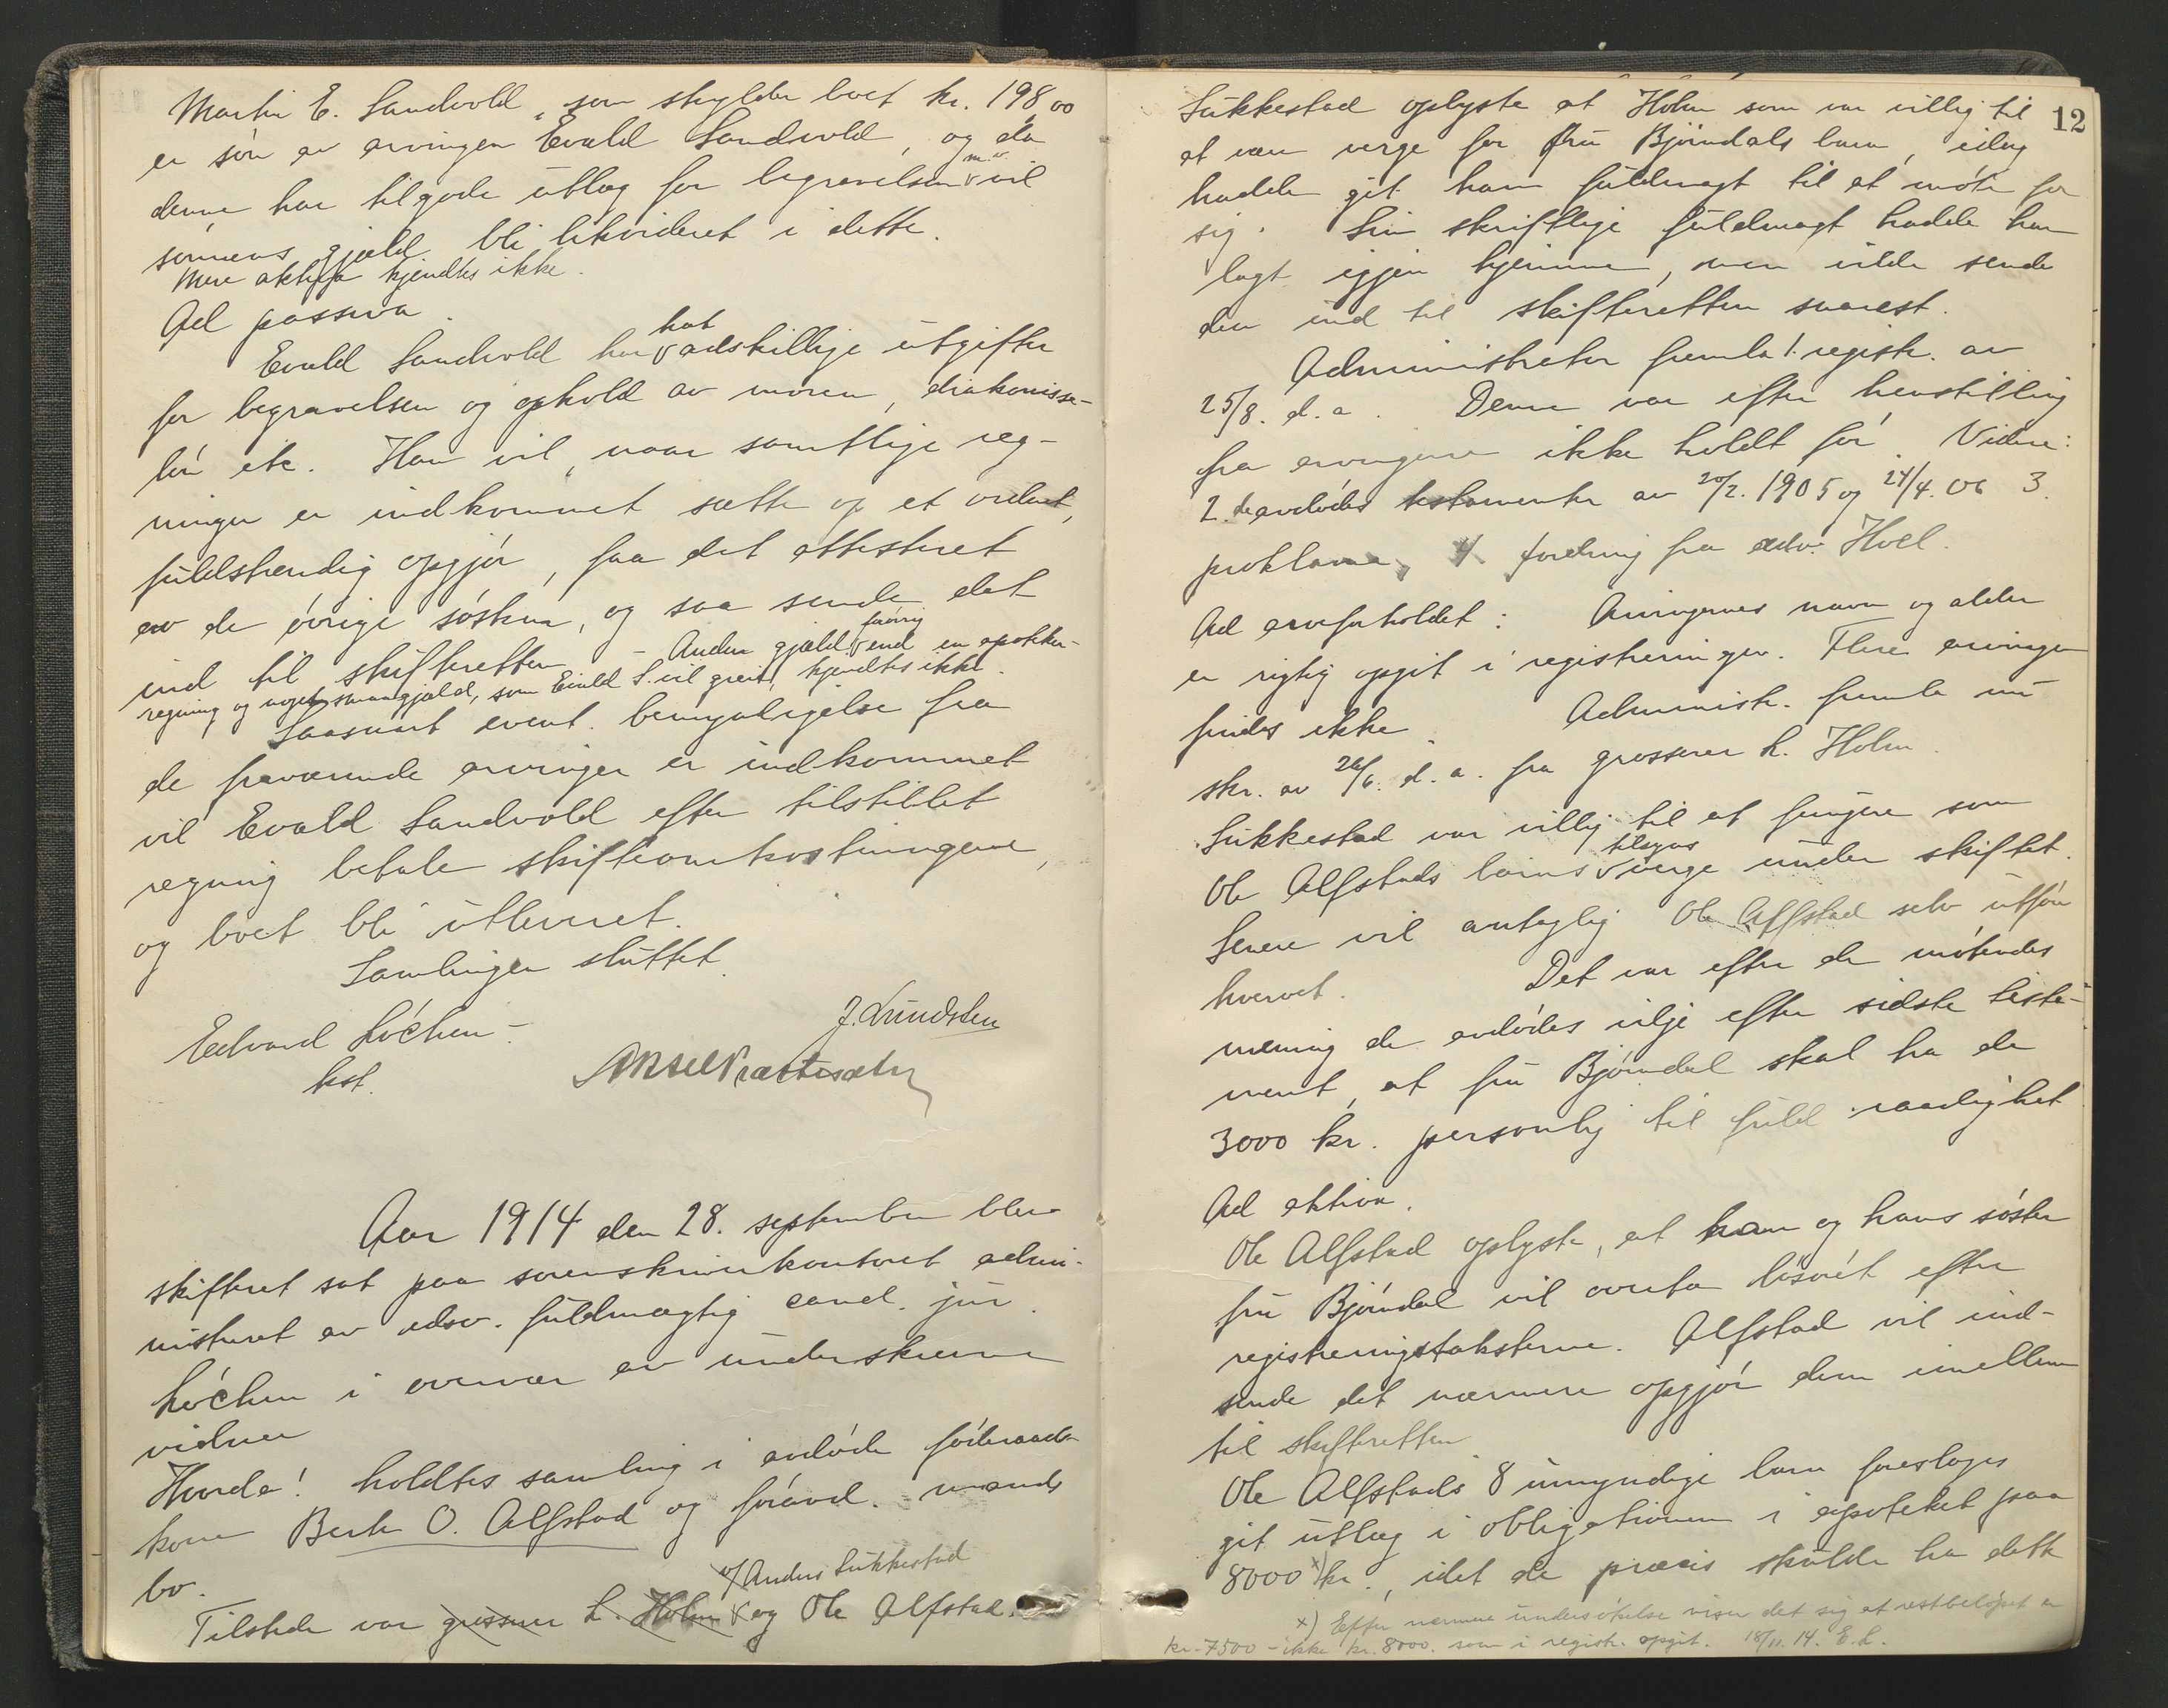 Martin E. Sandvold, som skylder boet kr. 198,00
er søn av arvingen Evald Sandvold, og da
denne har tilgode utlæg for begravelsen m.v. vil
sønnens gjæld bli likvideret i dette.
Mere aktiva kjendtes ikke.
Ad passiva.
Evald Sandvold har hat adskillige utgifter
for begravelsen og ophold av moren, diakonisse-
løn etc. Han vil, naar samtlige reg-
ninger er indkommet sætte op et ordnet,
fuldstændig opgjør, faa det attesteret
av de øvrige søsken, og saa sende det
ind til skifteretten. - Anden gjæld forøvrig end en apoteker-
regning og noget smaagjæld, som Evald S. vil greie, kjendtes ikke.
Saasnart event. bemyndigelse fra
de fraværende arvinger er indkommet
vil Evald Sandvold efter tilstillet
regning betale skifteomkostningerne,
og boet bli utleveret.
Samlingen sluttet.
Edvard Løchen
kst.
J. Lundsten
Aksel Præstesæter
Aar 1914 den 28. september blev
skifteret sat paa sorenskriverkontoret admi-
nistreret av edsv. fuldmægtig cand. jur.
Løchen i overvær av underskrevne
vidner
Hvorda! holdtes samling i avdøde føderaads-
kone Berte O. Alfstad og forávd. mands
bo.
Tilstede var grosserer L. Holm v/ Anders Sukkestad og Ole Alfstad.
12
Sukkestad oplyste at Holm som var villig til
at være verge for fru Bjørndals barn, idag
hadde git ham fuldmagt til at møte for
sig. Sin skriftlige fuldmagt hadde han
lagt igjen hjemme, men vilde sende
den ind til skifteretten snarest.
Administrator fremla 1. registr. av
25/8. d.a. Denne var efter henstilling
fra arvingerne ikke holdt før. Videre:
2. de avdødes testamenter av 20/2. 1905 og 24/4. 06 3.
proklama, 4 fordring fra adv. Hoel.
Ad arveforholdet: Arvingernes navn og alder
er rigtig opgit i registreringen. Flere arvinger
findes ikke. Administr. fremla nu
skr. av 26/6. d.a. fra grosserer L. Holm.
Sukkestad var villig til at fungere som
Ole Alfstads barns tilsyns verge under skiftet.
Senere vil antagelig Ole Alfstad selv utføre
hvervet. Det var efter de møtendes
mening de avdødes vilje efter sidste testa-
ment, at fru Bjørndal skal ha de
3000 kr. personlig til fuld raadighet
Ad aktiva.
Ole Alfstad oplyste, at han og hans søster
fru Bjørndal vil overta løsøret efter
registreringstaksterne. Alfstad vil ind-
sende det nærmere opgjør dem imellem
til skifteretten
Ole Alfstads 8 umyndige barn foreslages
git utlæg i obligationen i apoteket paa
8000 x) kr., idet de præcis skulde ha dette
x) Efter nærmere undersøkelse viser det sig at restbeløpet er
kr. 7500 - ikke kr. 8000. som i registr. opgit. 18/11. 14. E.L.